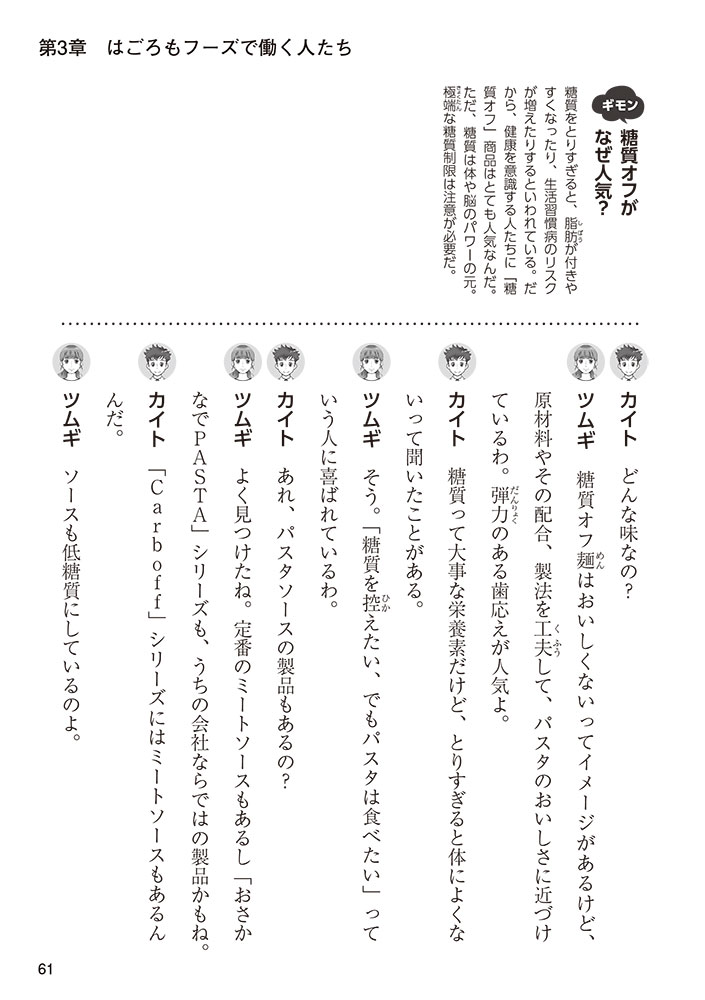 第3章 はごろもフーズで働く人たち
ギモン
糖質オフが
なぜ人気?
糖質をとりすぎると、脂肪が付きや
すくなったり、生活習慣病のリスク
が増えたりするといわれている。だ
から、健康を意識する人たちに「糖
質オフ」商品はとても人気なんだ。
ただ、糖質は体や脳のパワーの元。
極端な糖質制限は注意が必要だ。
カイト どんな味なの?
ツムギ 糖質オフ麺はおいしくないってイメージがあるけど、
原材料やその配合、製法を工夫して、パスタのおいしさに近づけ
ているわ。弾力のある歯応えが人気よ。
カイト 糖質って大事な栄養素だけど、とりすぎると体によくな
いって聞いたことがある。
ツムギ そう。「糖質を控えたい、でもパスタは食べたい」って
いう人に喜ばれているわ。
カイト あれ、パスタソースの製品もあるの?
ツムギ よく見つけたね。定番のミートソースもあるし「おさか
なでPASTA」シリーズも、うちの会社ならではの製品かもね。
カイト 「Carboff」シリーズにはミートソースもあるん
んだ。
ツムギ ソースも低糖質にしているのよ。
61